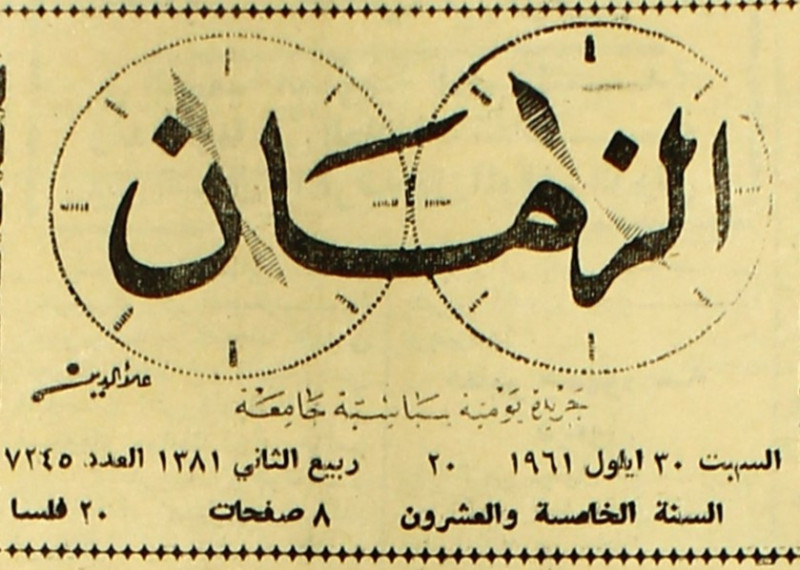 الزمان
علاء الدين
جريدة يومية سياسية جامعة
السبت ٣٠ ايلول ١٩٦١ ٢٠ ربيع الثاني ١٣٨١ العدد ٧٢٤٥
السنة الخامسة والعشرون ٨ صفحات ٢٠ فلسا